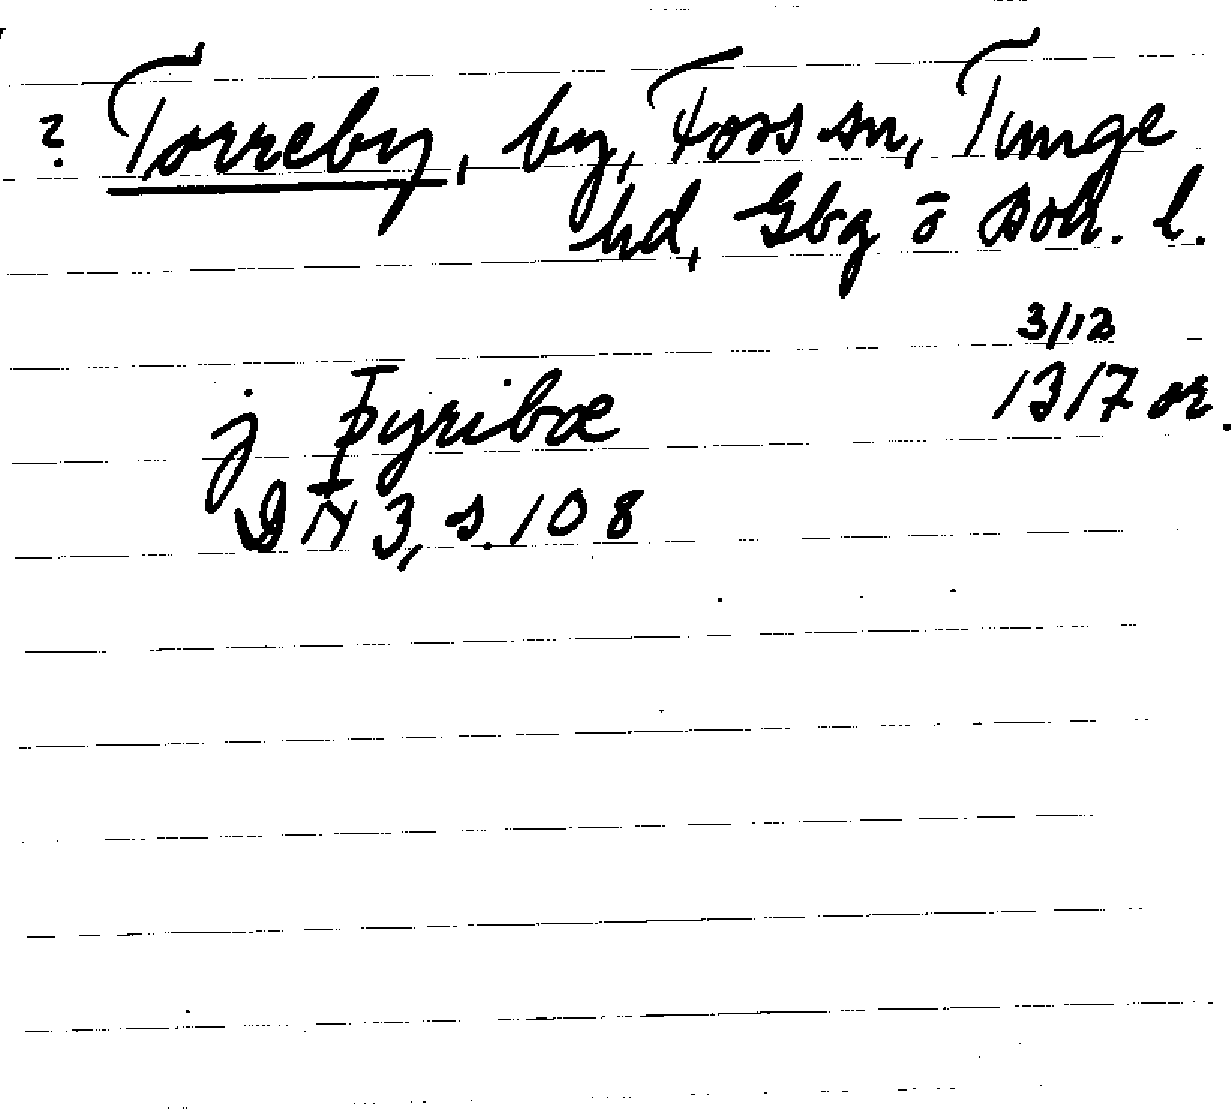 ? Torreby, by, Foss sn, Tunge
hd, Gbg o Boh. l.
3/12
1317 or.
j Þyribœ
DN 3, s. 108